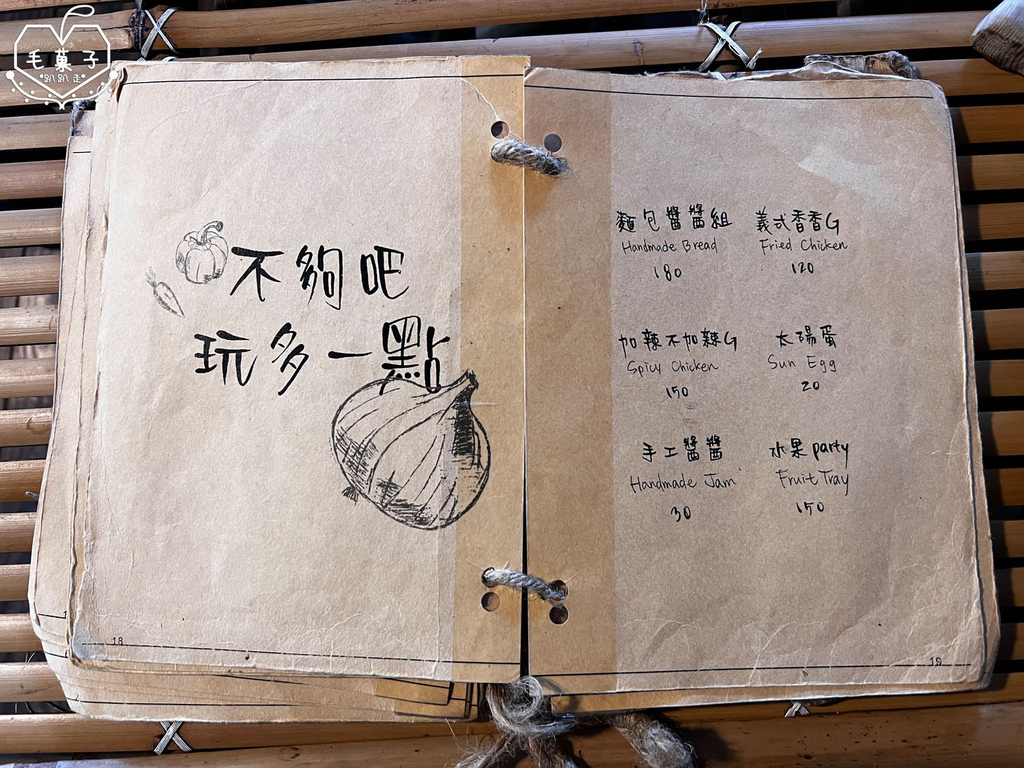 毛菓子
趴趴走
不夠吧
玩多一點
18
麵包醬醬組
Handmade Bread
180
義式香香G
Fried Chicken
120
加辣不加辣G
Spicy Chicken
150
太陽蛋
Sun Egg
20
手工醬醬
Handmade Jam
30
水果party
Fruit Tray
150
19